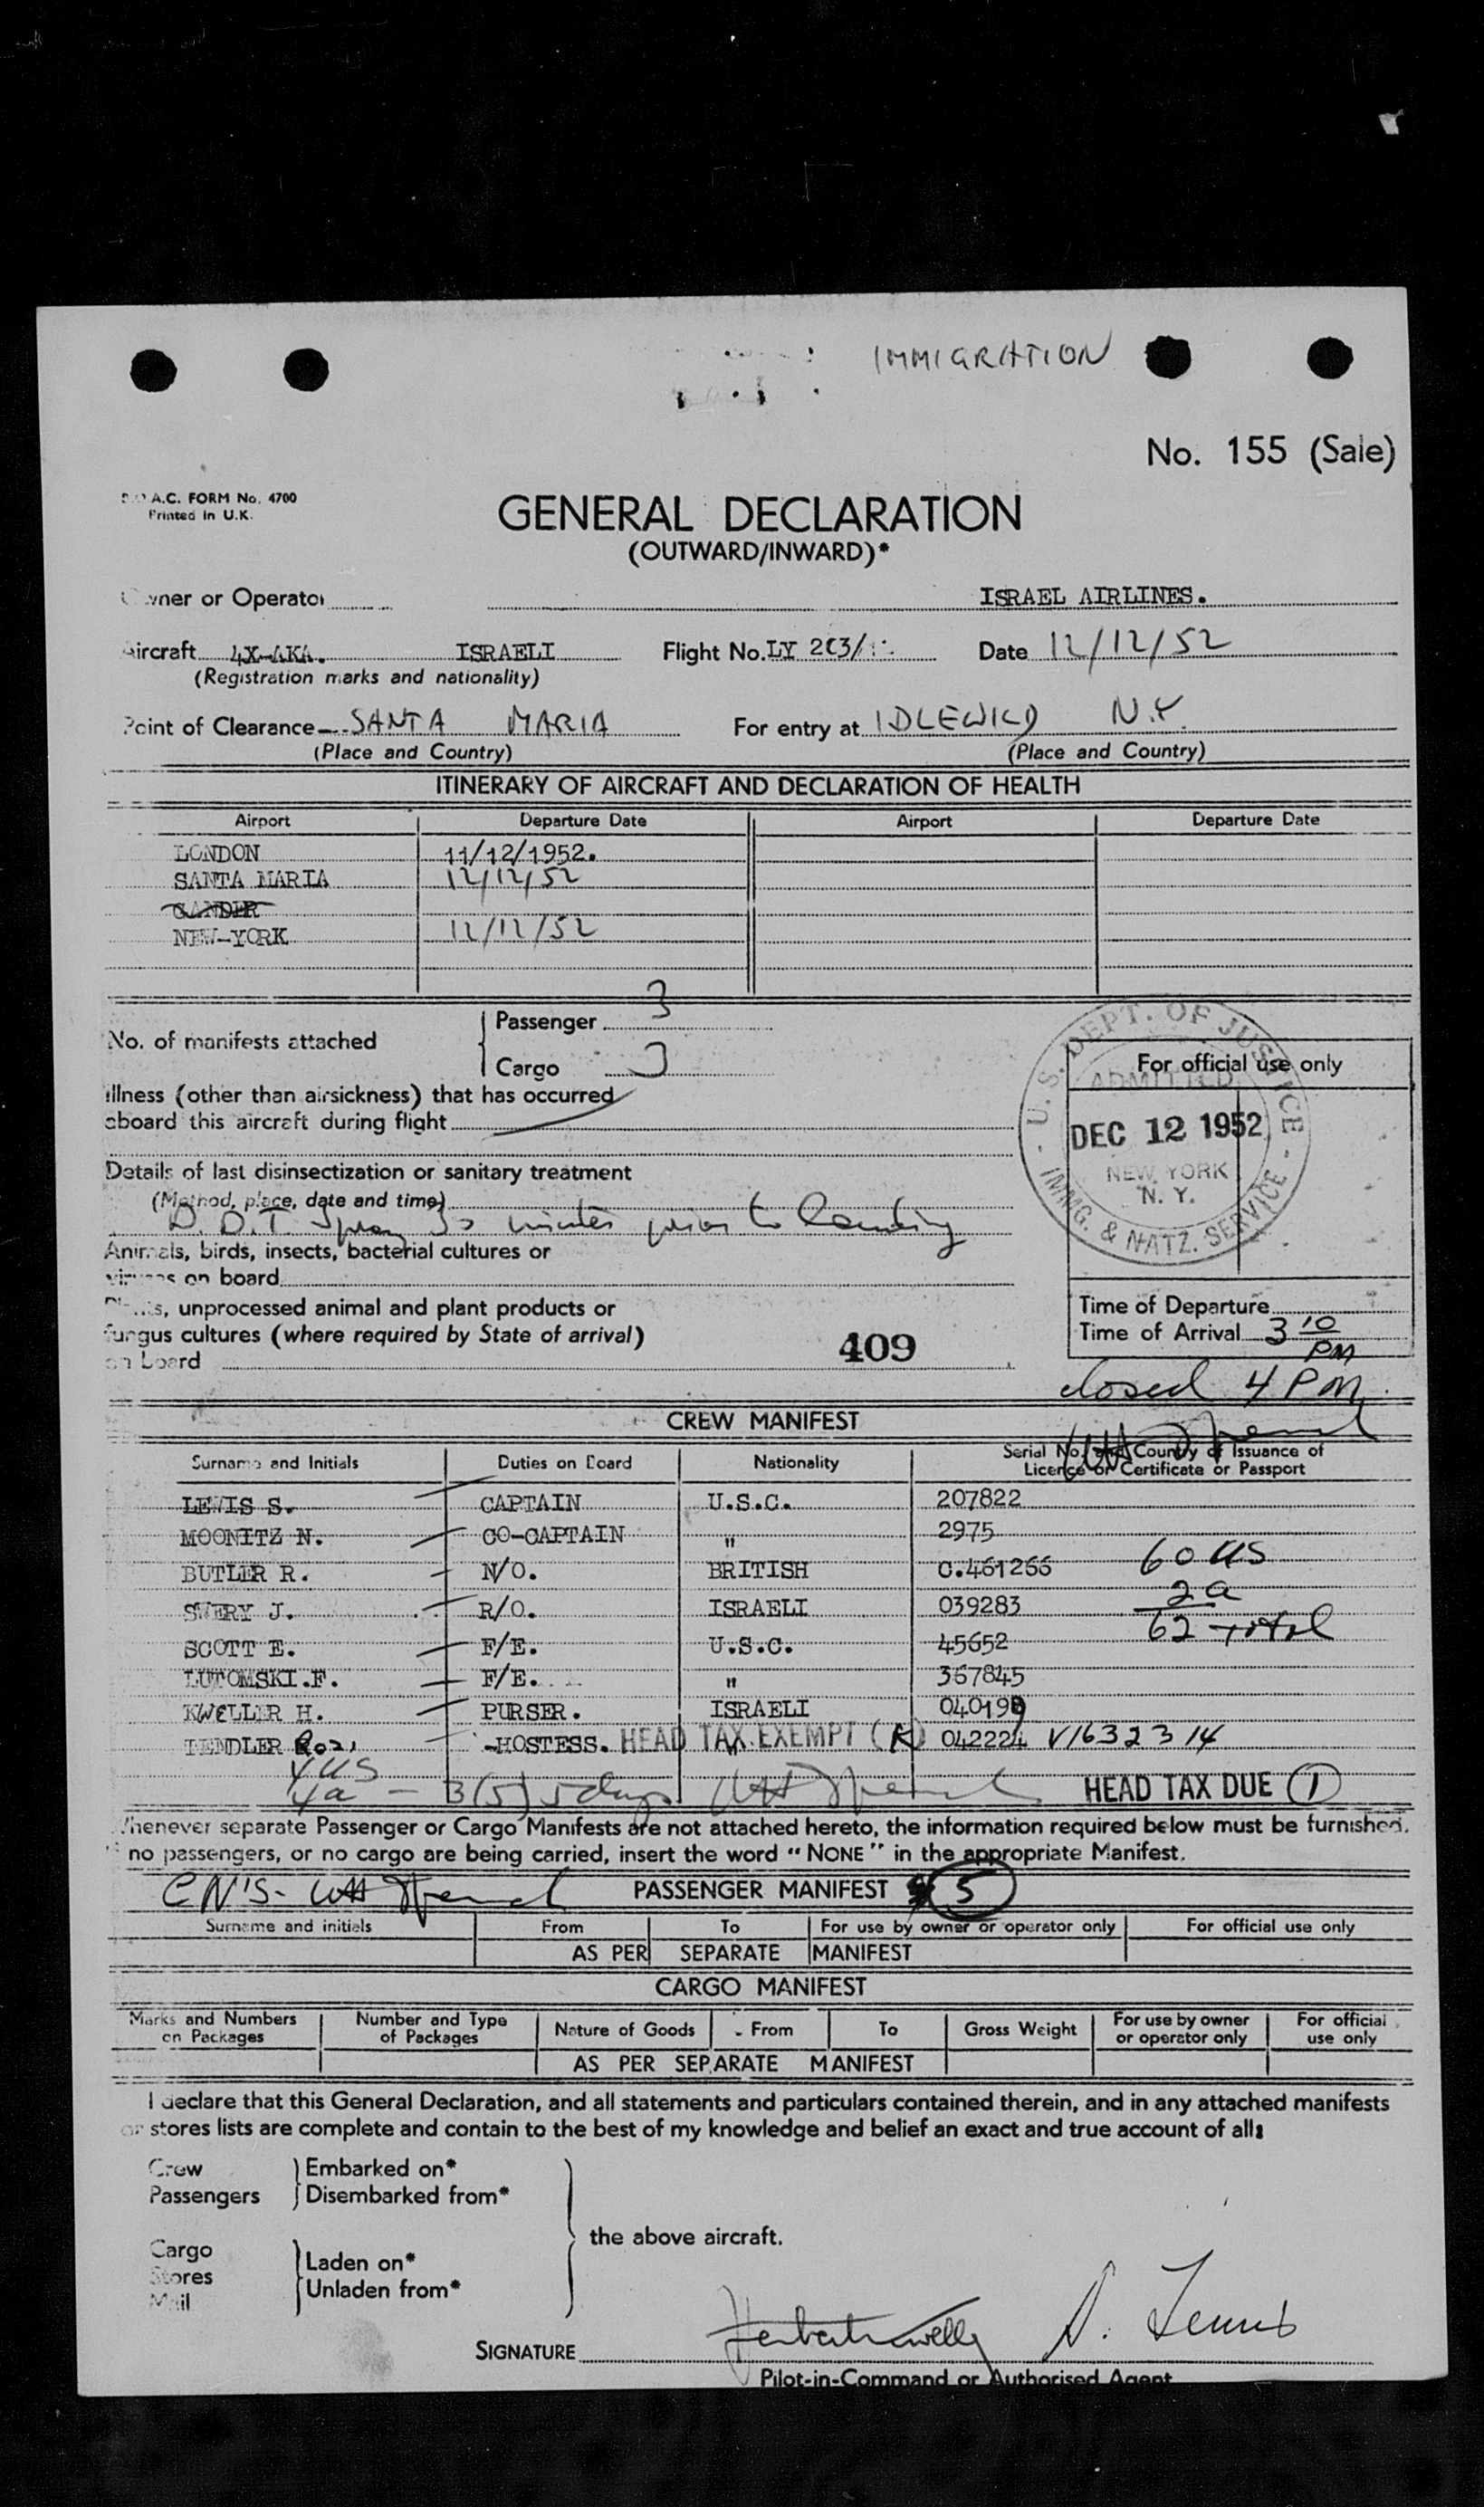 IMMIGRATION
No. 155 (Sale)
A.C. FORM No. 4700
Printed in U.K.
GENERAL DECLARATION
(OUTWARD/INWARD)*
Owner or Operator ISRAEL AIRLINES.
Aircraft 4X-AKA. ISRAELI Flight No. LY 203/ Date 12/12/52
(Registration marks and nationality)
Point of Clearance SANTA MARIA For entry at IDLEWILD N.Y.
(Place and Country) (Place and Country)
ITINERARY OF AIRCRAFT AND DECLARATION OF HEALTH
Airport Departure Date Airport Departure Date
LONDON 11/12/1952.
SANTA MARIA 12/12/52
GANDER
NEW-YORK 12/12/52
No. of manifests attached
Passenger 3
Cargo 3
For official use only
U.S. DEPT. OF JUSTICE
ADMITTED
DEC 12 1952
NEW YORK
N. Y.
IMMG. & NATZ. SERVICE
Illness (other than airsickness) that has occurred
aboard this aircraft during flight
Details of last disinsectization or sanitary treatment
(Method, place, date and time)
D.D.T. Spray 30 minutes prior to landing
Animals, birds, insects, bacterial cultures or
viruses on board
Plants, unprocessed animal and plant products or
fungus cultures (where required by State of arrival)
on board
409
Time of Departure
Time of Arrival 3 10 PM
closed 4 PM
CREW MANIFEST
Surname and Initials Duties on Board Nationality Serial No. and Country of Issuance of
Licence or Certificate or Passport
LEWIS S. CAPTAIN U.S.C. 207822
MOONITZ N. CO-CAPTAIN " 2975
BUTLER R. N/O. BRITISH C.461266 60 US
SWERY J. R/O. ISRAELI 039283 2a
SCOTT E. F/E. U.S.C. 45652 62 total
LUTOMSKI.F. F/E. " 367845
KWELLER H. PURSER. ISRAELI 040199
TENDLER Rozi -HOSTESS. HEAD TAX EXEMPT (K) 042224 V1632314
4US
4a - B(5) 5 days HEAD TAX DUE 1
Whenever separate Passenger or Cargo Manifests are not attached hereto, the information required below must be furnished.
no passengers, or no cargo are being carried, insert the word "NONE" in the appropriate Manifest.
CN'S- PASSENGER MANIFEST 5
Surname and initials From To For use by owner or operator only For official use only
AS PER SEPARATE MANIFEST
CARGO MANIFEST
Marks and Numbers on Packages Number and Type of Packages Nature of Goods From To Gross Weight For use by owner or operator only For official use only
AS PER SEPARATE MANIFEST
I declare that this General Declaration, and all statements and particulars contained therein, and in any attached manifests
or stores lists are complete and contain to the best of my knowledge and belief an exact and true account of all:
Crew
Passengers
Embarked on*
Disembarked from*
the above aircraft.
Cargo
Stores
Mail
Laden on*
Unladen from*
SIGNATURE S. Lewis
Pilot-in-Command or Authorised Agent